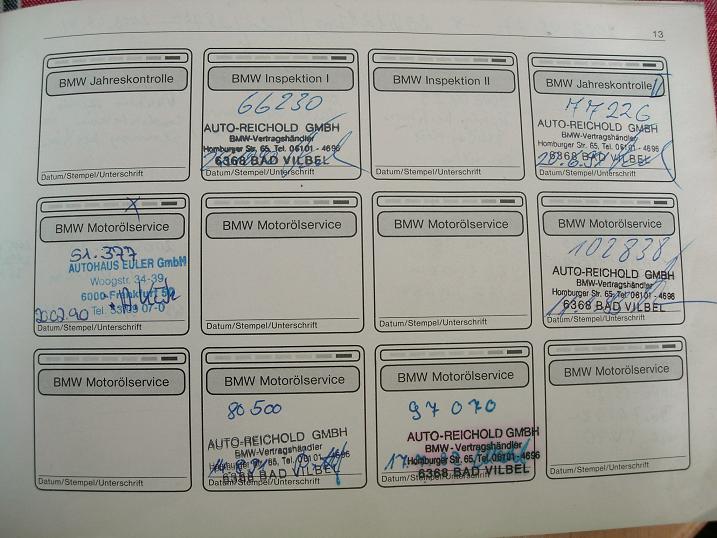 13
BMW Jahreskontrolle
Datum/Stempel/Unterschrift
BMW Inspektion I
66230
AUTO-REICHOLD GMBH
BMW-Vertragshändler
Homburger Str. 65, Tel. 06101 - 4696
6368 BAD VILBEL
Datum/Stempel/Unterschrift
BMW Inspektion II
Datum/Stempel/Unterschrift
BMW Jahreskontrolle
77226
AUTO-REICHOLD GMBH
BMW-Vertragshändler
Homburger Str. 65, Tel. 06101 - 4696
6368 BAD VILBEL
Datum/Stempel/Unterschrift
BMW Motorölservice
51.377
AUTOHAUS EULER GmbH
Woogstr. 34-39
6000 Frankfurt 50
20.02.90 Tel. 07-0
Datum/Stempel/Unterschrift
BMW Motorölservice
Datum/Stempel/Unterschrift
BMW Motorölservice
Datum/Stempel/Unterschrift
BMW Motorölservice
102838
AUTO-REICHOLD GMBH
BMW-Vertragshändler
Homburger Str. 65, Tel. 06101 - 4696
6368 BAD VILBEL
Datum/Stempel/Unterschrift
BMW Motorölservice
Datum/Stempel/Unterschrift
BMW Motorölservice
80500
AUTO-REICHOLD GMBH
BMW-Vertragshändler
Homburger Str. 65, Tel. 06101 - 4696
6368 BAD VILBEL
Datum/Stempel/Unterschrift
BMW Motorölservice
97070
AUTO-REICHOLD GMBH
BMW-Vertragshändler
Homburger Str. 65, Tel. 06101 - 4696
6368 BAD VILBEL
Datum/Stempel/Unterschrift
BMW Motorölservice
Datum/Stempel/Unterschrift